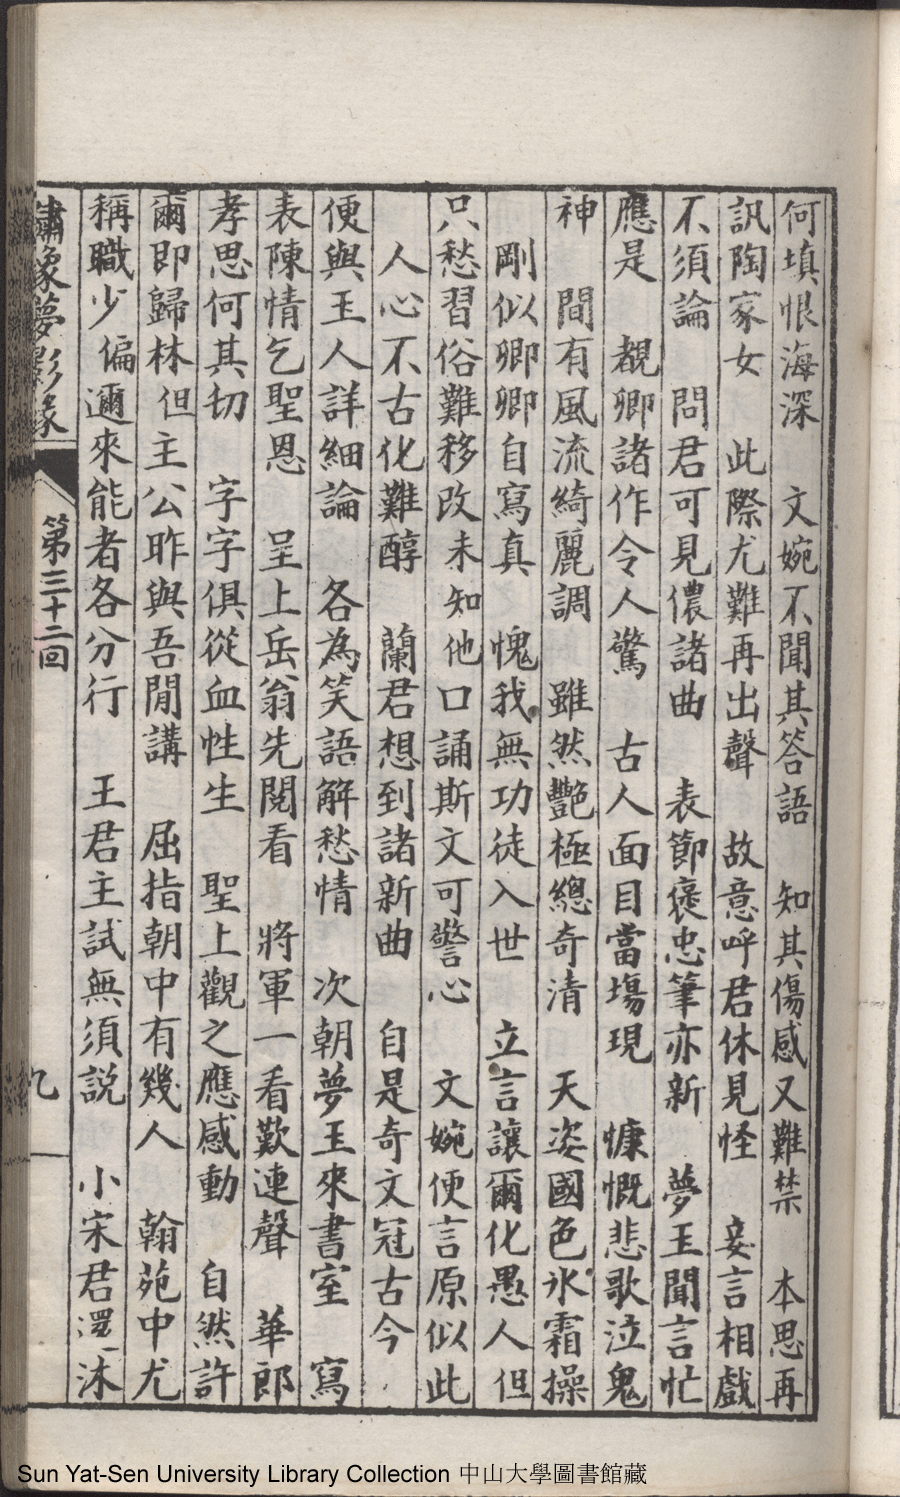 何填恨海深　文婉不聞其答語　知其傷感又難禁　本思再
訊陶家女　此際尤難再出聲　故意呼君休見怪　妄言相戲
不須論　問君可見儂諸曲　表節褒忠筆亦新　夢玉聞言忙
應是　覩卿諸作令人驚　古人面目當場現　慷慨悲歌泣鬼
神　間有風流綺麗調　雖然艷極總奇清　天姿國色氷霜操
剛似卿卿自寫真　愧我無功徒入世　立言讓爾化愚人但
只愁習俗難移改未知他口誦斯文可警心　文婉便言原似此
人心不古化難醇　蘭君想到諸新曲　自是奇文冠古今
便與玉人詳細論　各為笑語解愁情　次朝夢玉來書室　寫
表陳情乞聖恩　呈上岳翁先閱看　將軍一看歎連聲　華郎
孝思何其切　字字俱從血性生　聖上觀之應感動　自然許
爾即歸林但主公昨與吾閒講　屈指朝中有幾人　翰苑中尤
稱職少偏邇來能者各分行　王君主試無須説　小宋君還沐
繡像夢影緣　第三十二回　九
Sun Yat-Sen University Library Collection 中山大學圖書館藏